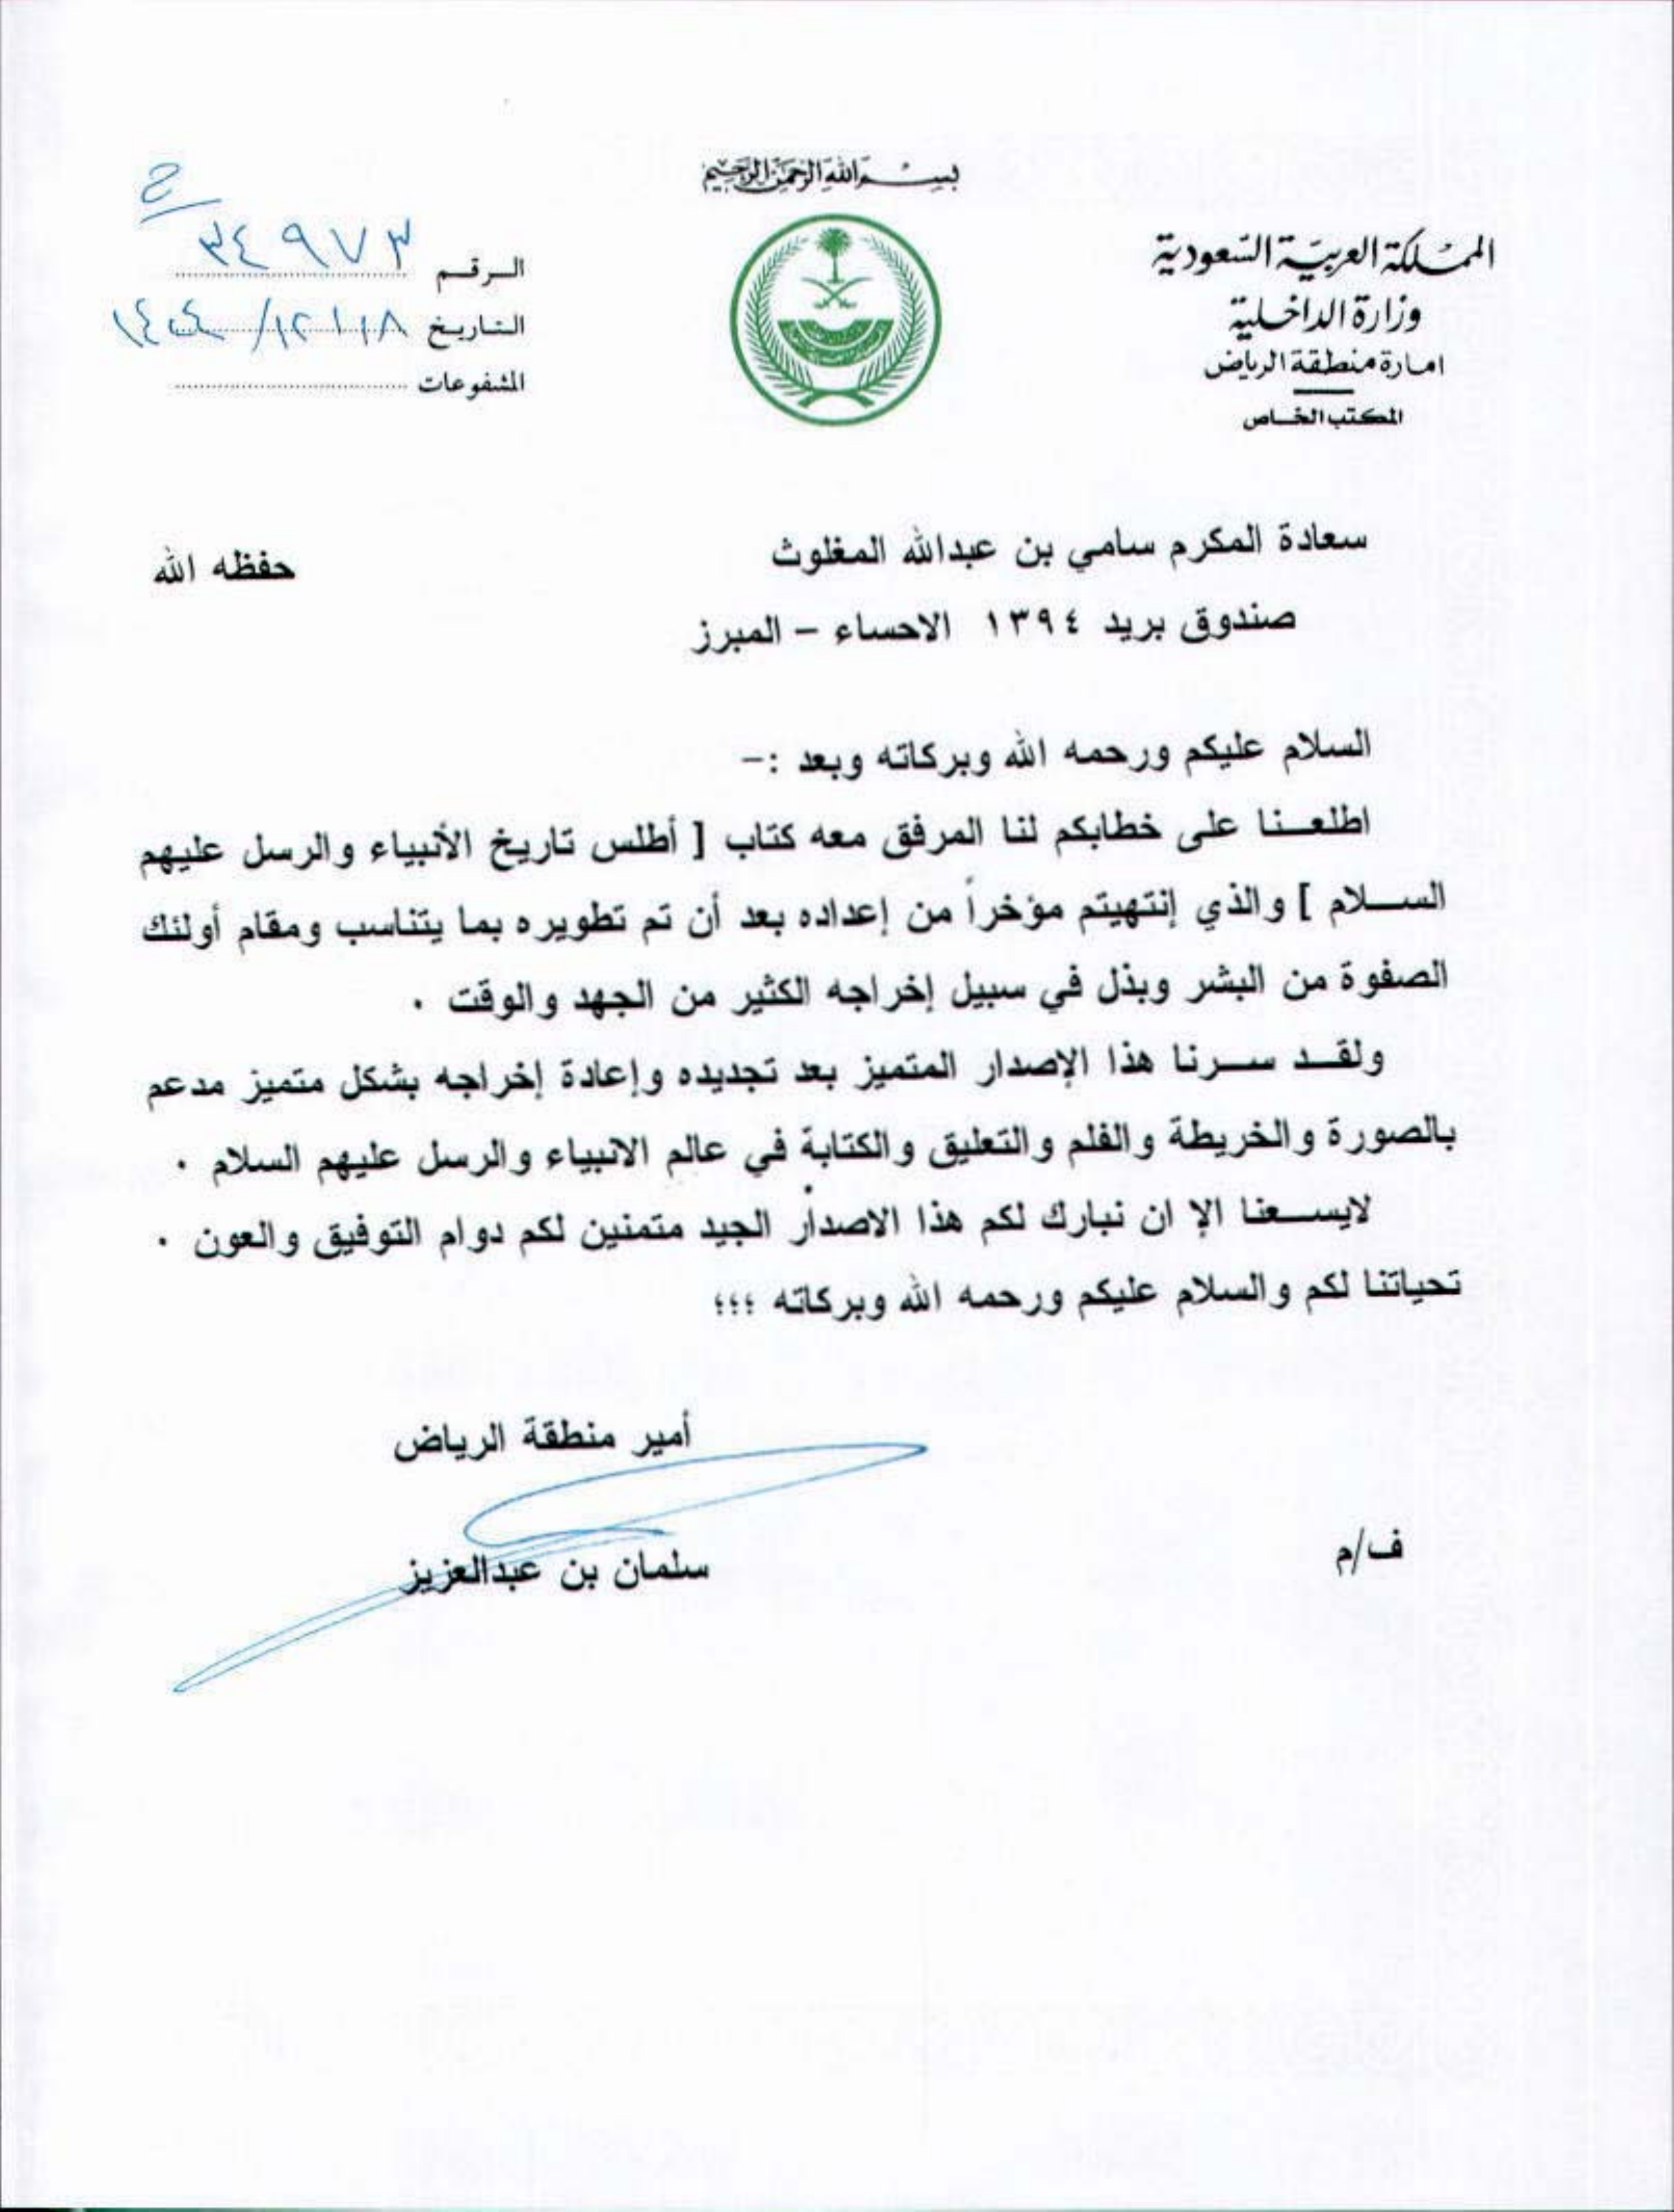 بسم الله الرحمن الرحيم
المملكة العربية السعودية
وزارة الداخلية
امارة منطقة الرياض
المكتب الخاص
ح
الرقم ٣٤٩٧٣
التاريخ
المشفوعات
سعادة المكرم سامي بن عبدالله المغلوث حفظه الله
صندوق بريد ١٣٩٤ الاحساء – المبرز
السلام عليكم ورحمه الله وبركاته وبعد :-
اطلعنا على خطابكم لنا المرفق معه كتاب [ أطلس تاريخ الأنبياء والرسل عليهم
السلام ] والذي إنتهيتم مؤخراً من إعداده بعد أن تم تطويره بما يتناسب ومقام أولئك
الصفوة من البشر وبذل في سبيل إخراجه الكثير من الجهد والوقت .
ولقد سرنا هذا الإصدار المتميز بعد تجديده وإعادة إخراجه بشكل متميز مدعم
بالصورة والخريطة والفلم والتعليق والكتابة في عالم الانبياء والرسل عليهم السلام .
لايسعنا الإ ان نبارك لكم هذا الاصدار الجيد متمنين لكم دوام التوفيق والعون .
تحياتنا لكم والسلام عليكم ورحمه الله وبركاته ؛؛؛
أمير منطقة الرياض
سلمان بن عبدالعزيز
ف/م